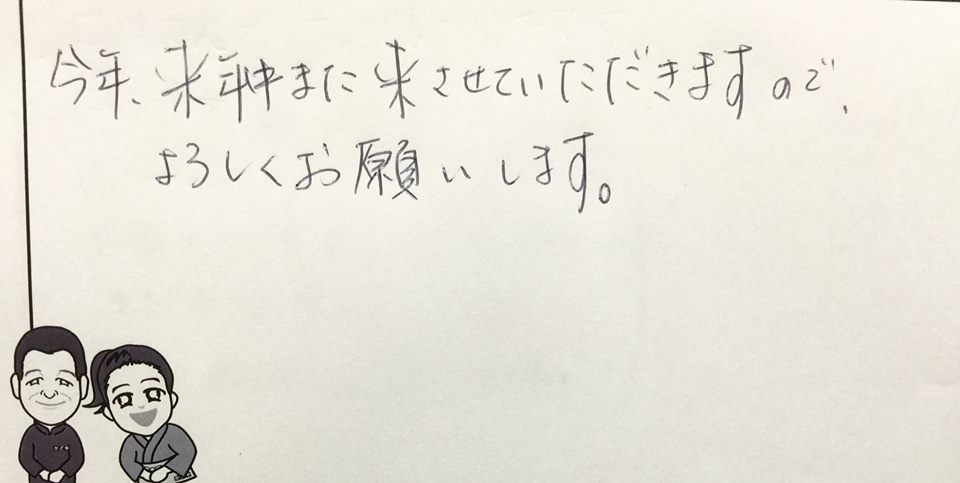 今年、来年中また来させていただきますので、
よろしくお願いします。